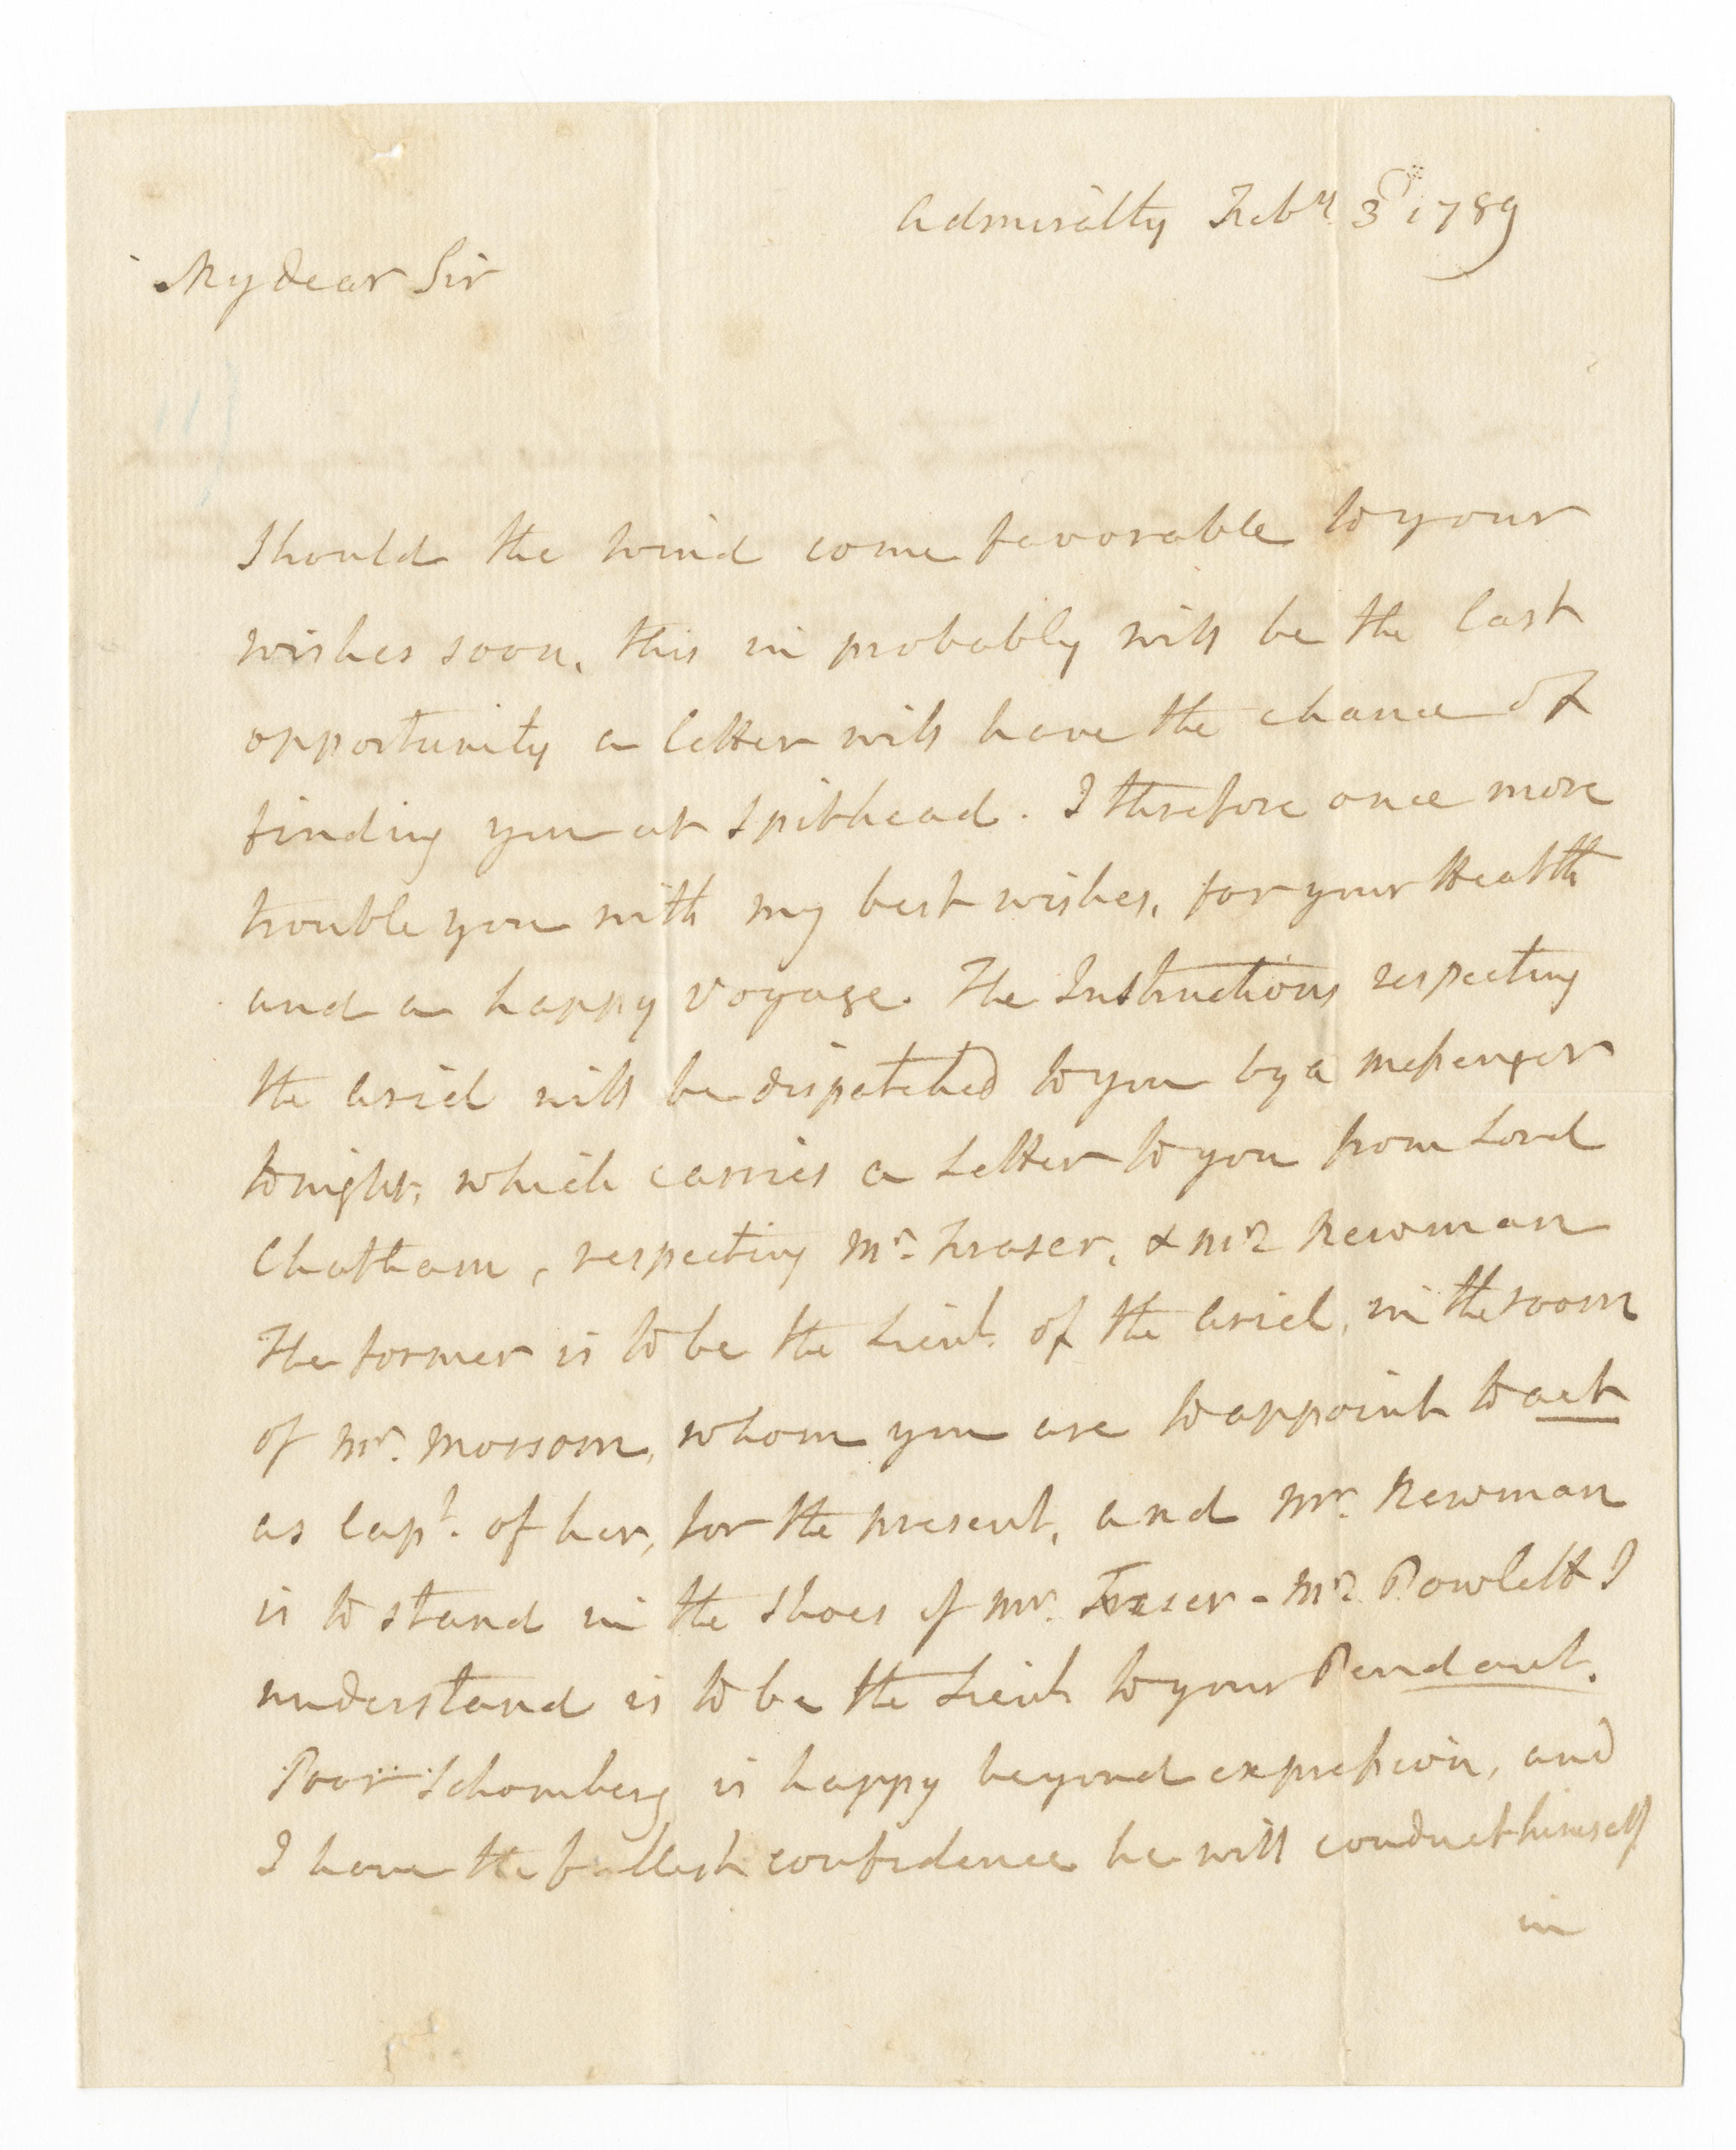 Admiralty Feb.y 3d 1789
My dear Sir
Should the wind come favorable to your
wishes soon, this in probably will be the last
opportunity a letter will have the chance of
finding you at Spithead. I therefore once more
trouble you with my best wishes, for your Health
and a happy Voyage. The Instructions respecting
the Ariel will be dispatched to you by a messenger
tonight, which carries a Letter to you from Lord
Chatham, respecting Mr. Fraser, & Mr. Newman
The former is to be the Lieut. of the Ariel, in the room
of Mr. Mossom, whom you are to appoint to act
as Capt. of her, for the present, and Mr. Newman
is to stand in the Shoes of Mr. Fraser - Mr. Powlett I
understand is to be the Lieut. to your Pendant.
Poor Schomberg is happy beyond expression, and
I have the fullest confidence he will conduct himself
in